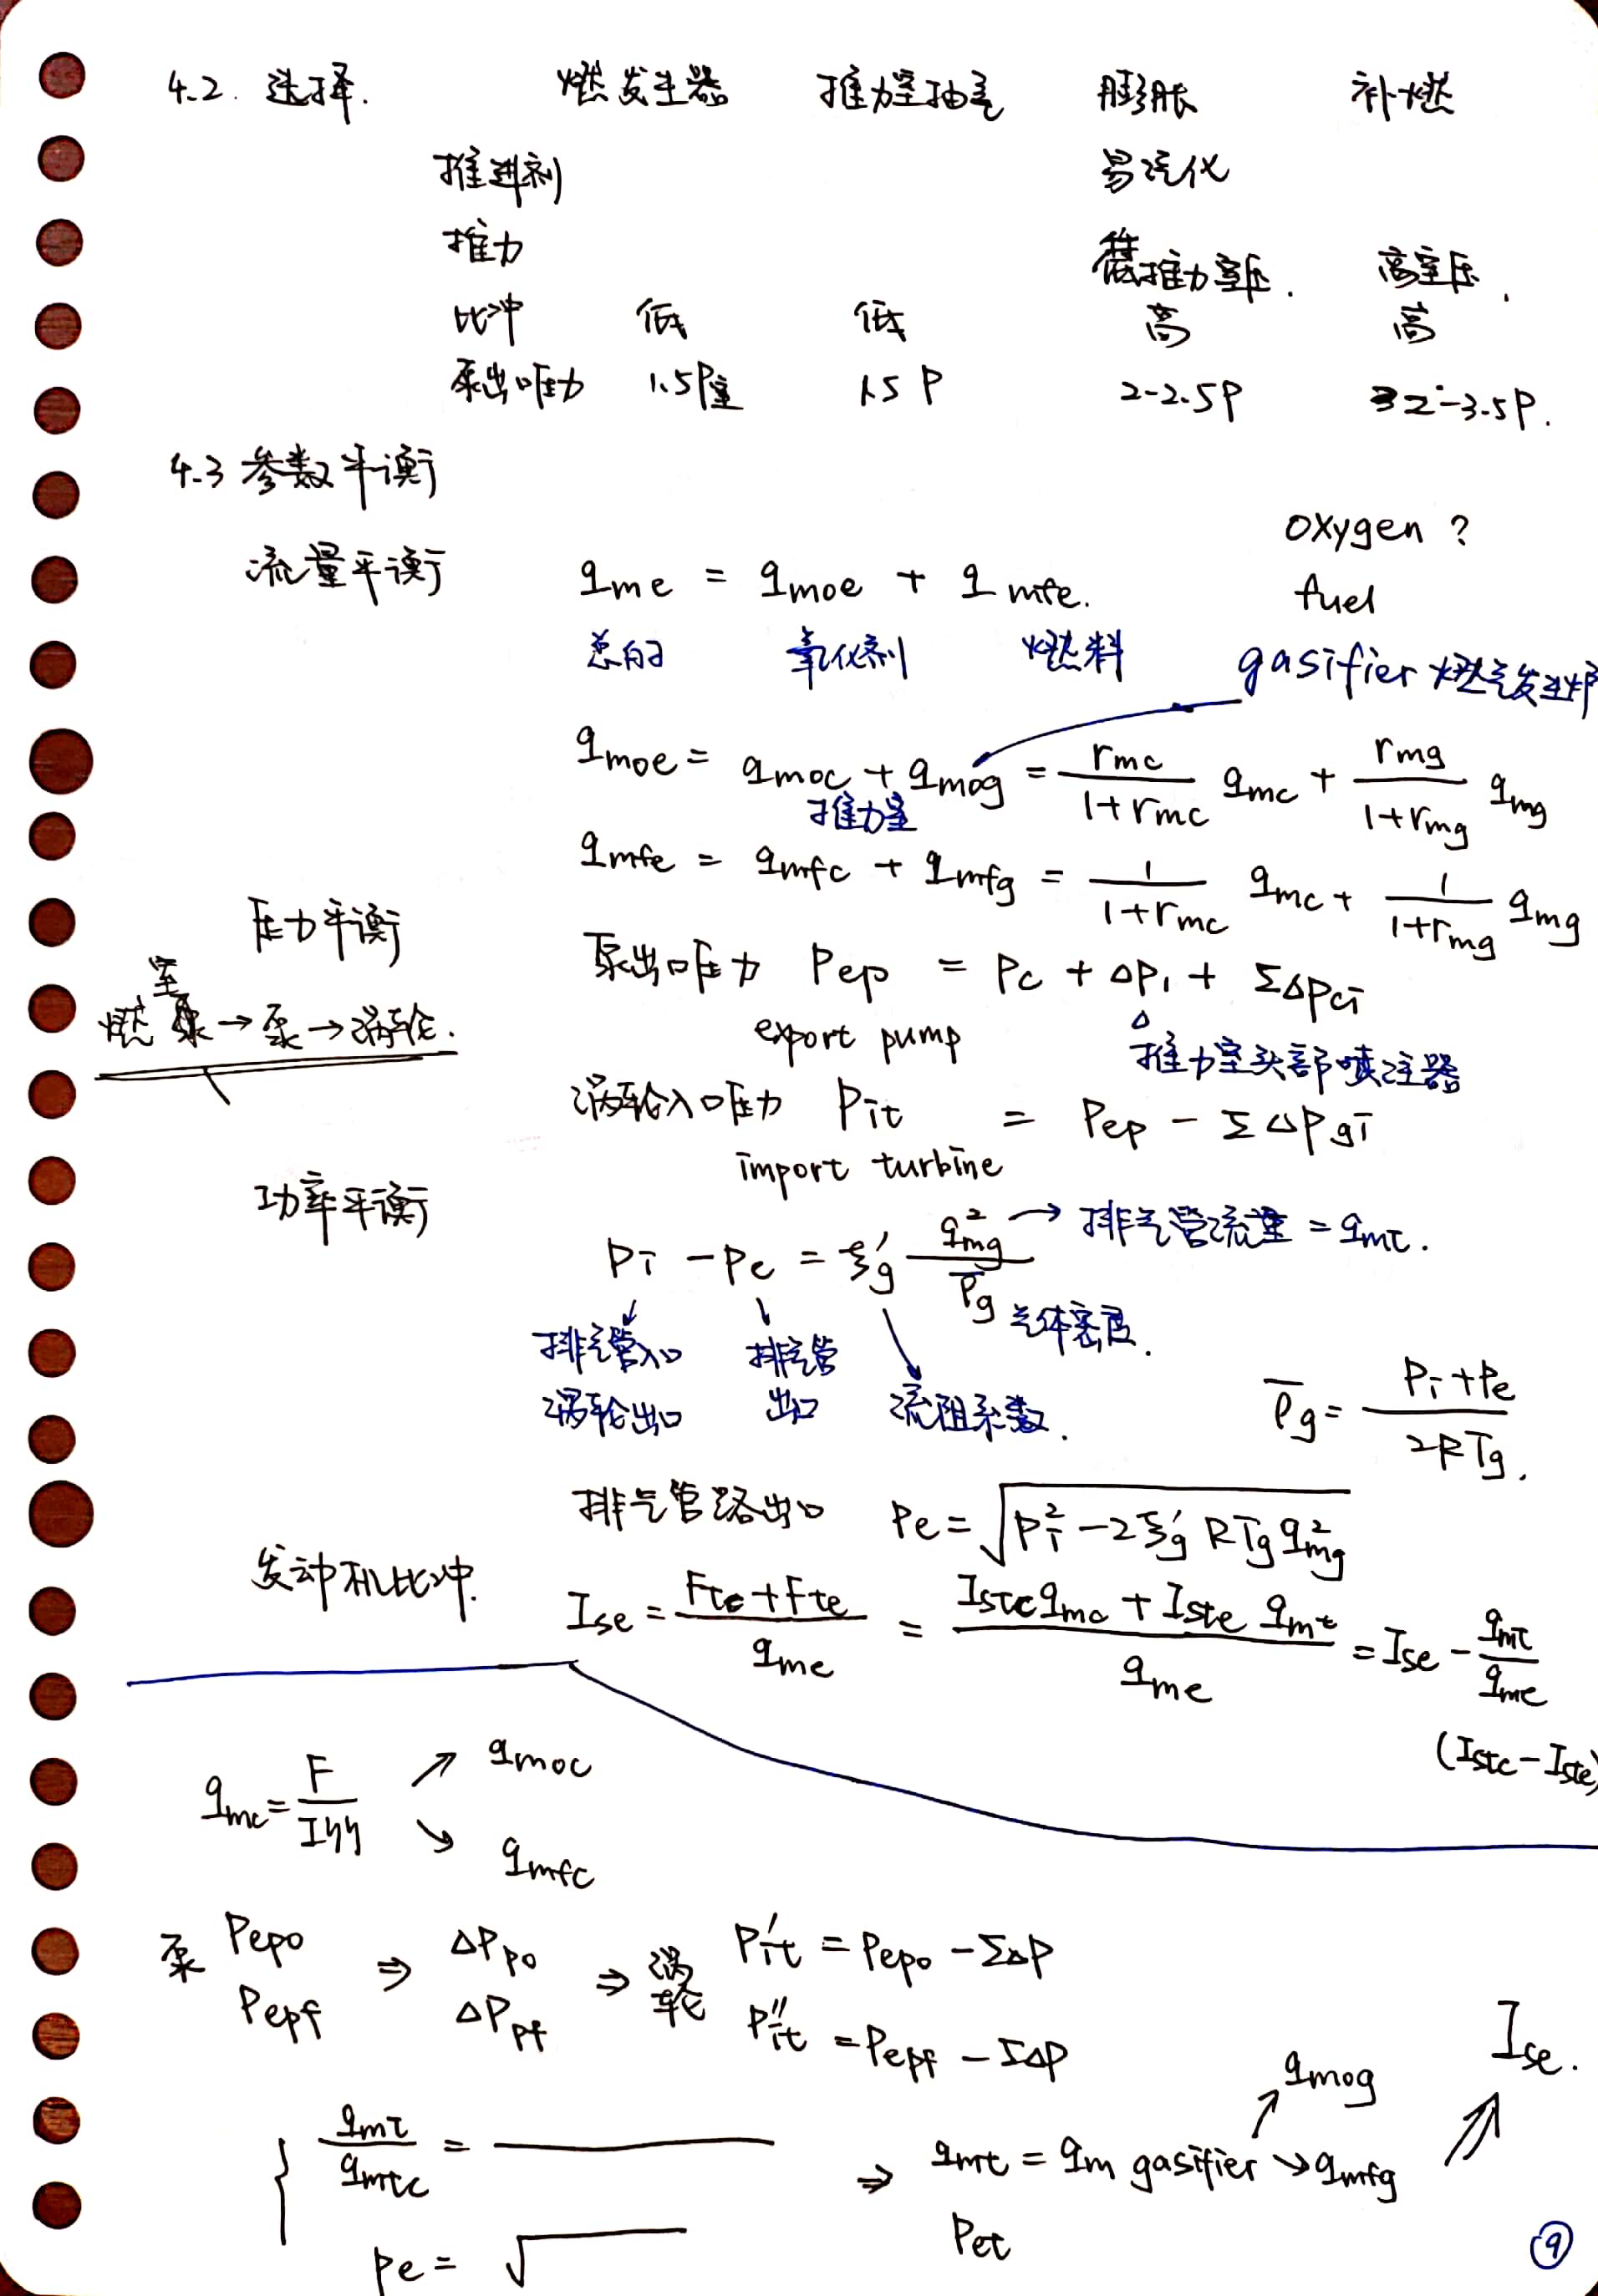 4.2. 选择. 燃发生器 推力室抽气 膨胀 补燃
推进剂 易汽化
推力 低推力室压. 高室压.
比冲 低 低 高 高
泵出口压力 1.5P室 1.5P 2-2.5P 2-3.5P.
4.3 参数平衡
oxygen ?
流量平衡 qme = qmoe + qmfe. fuel
总的 氧化剂 燃料 gasifier 燃气发生炉
qmoe = qmoc + qmog = rmc/(1+rmc) qmc + rmg/(1+rmg) qmg
推力室
qmfe = qmfc + qmfg = 1/(1+rmc) qmc + 1/(1+rmg) qmg
压力平衡
泵出口压力 Pep = Pc + ΔP1 + ΣΔPci
室
燃 → 泵 → 涡轮.
export pump 推力室头部喷注器
涡轮入口压力 Pit = Pep - ΣΔPgi
import turbine
功率平衡
Pi - Pe = ξ'g q²mg/ρ̅g → 排气管流量 = qmt.
气体密度.
排气管入口 排气管
涡轮出口 出口 流阻系数.
ρ̅g = (Pi+Pe)/(2RTg).
排气管路出口 Pe = √(Pi² - 2ξ'g RTg q²mg)
发动机比冲. Ise = (Ftc+Fte)/qme = (Istc qmc + Iste qmt)/qme = Ise - qmt/qme
(Istc - Iste)
qmc = F/Iηη ↗ qmoc
↘ qmfc
泵 Pepo ⇒ ΔPpo ⇒ 涡轮 P'it = Pepo - ΣΔP
Pepf ΔPpf P''it = Pepf - ΣΔP
Ise.
qmog
{ qmt/qmtc = ⇒ qmt = qm gasifier → qmfg
Pe = √ Pet
9